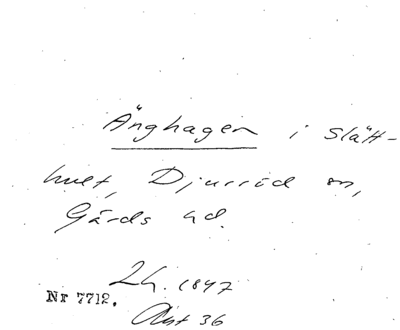 Änghagen i Slätt-
hult, Djurröd sn,
Gärds hd.
Lh. 1847
Nr 7712.
Akt 36